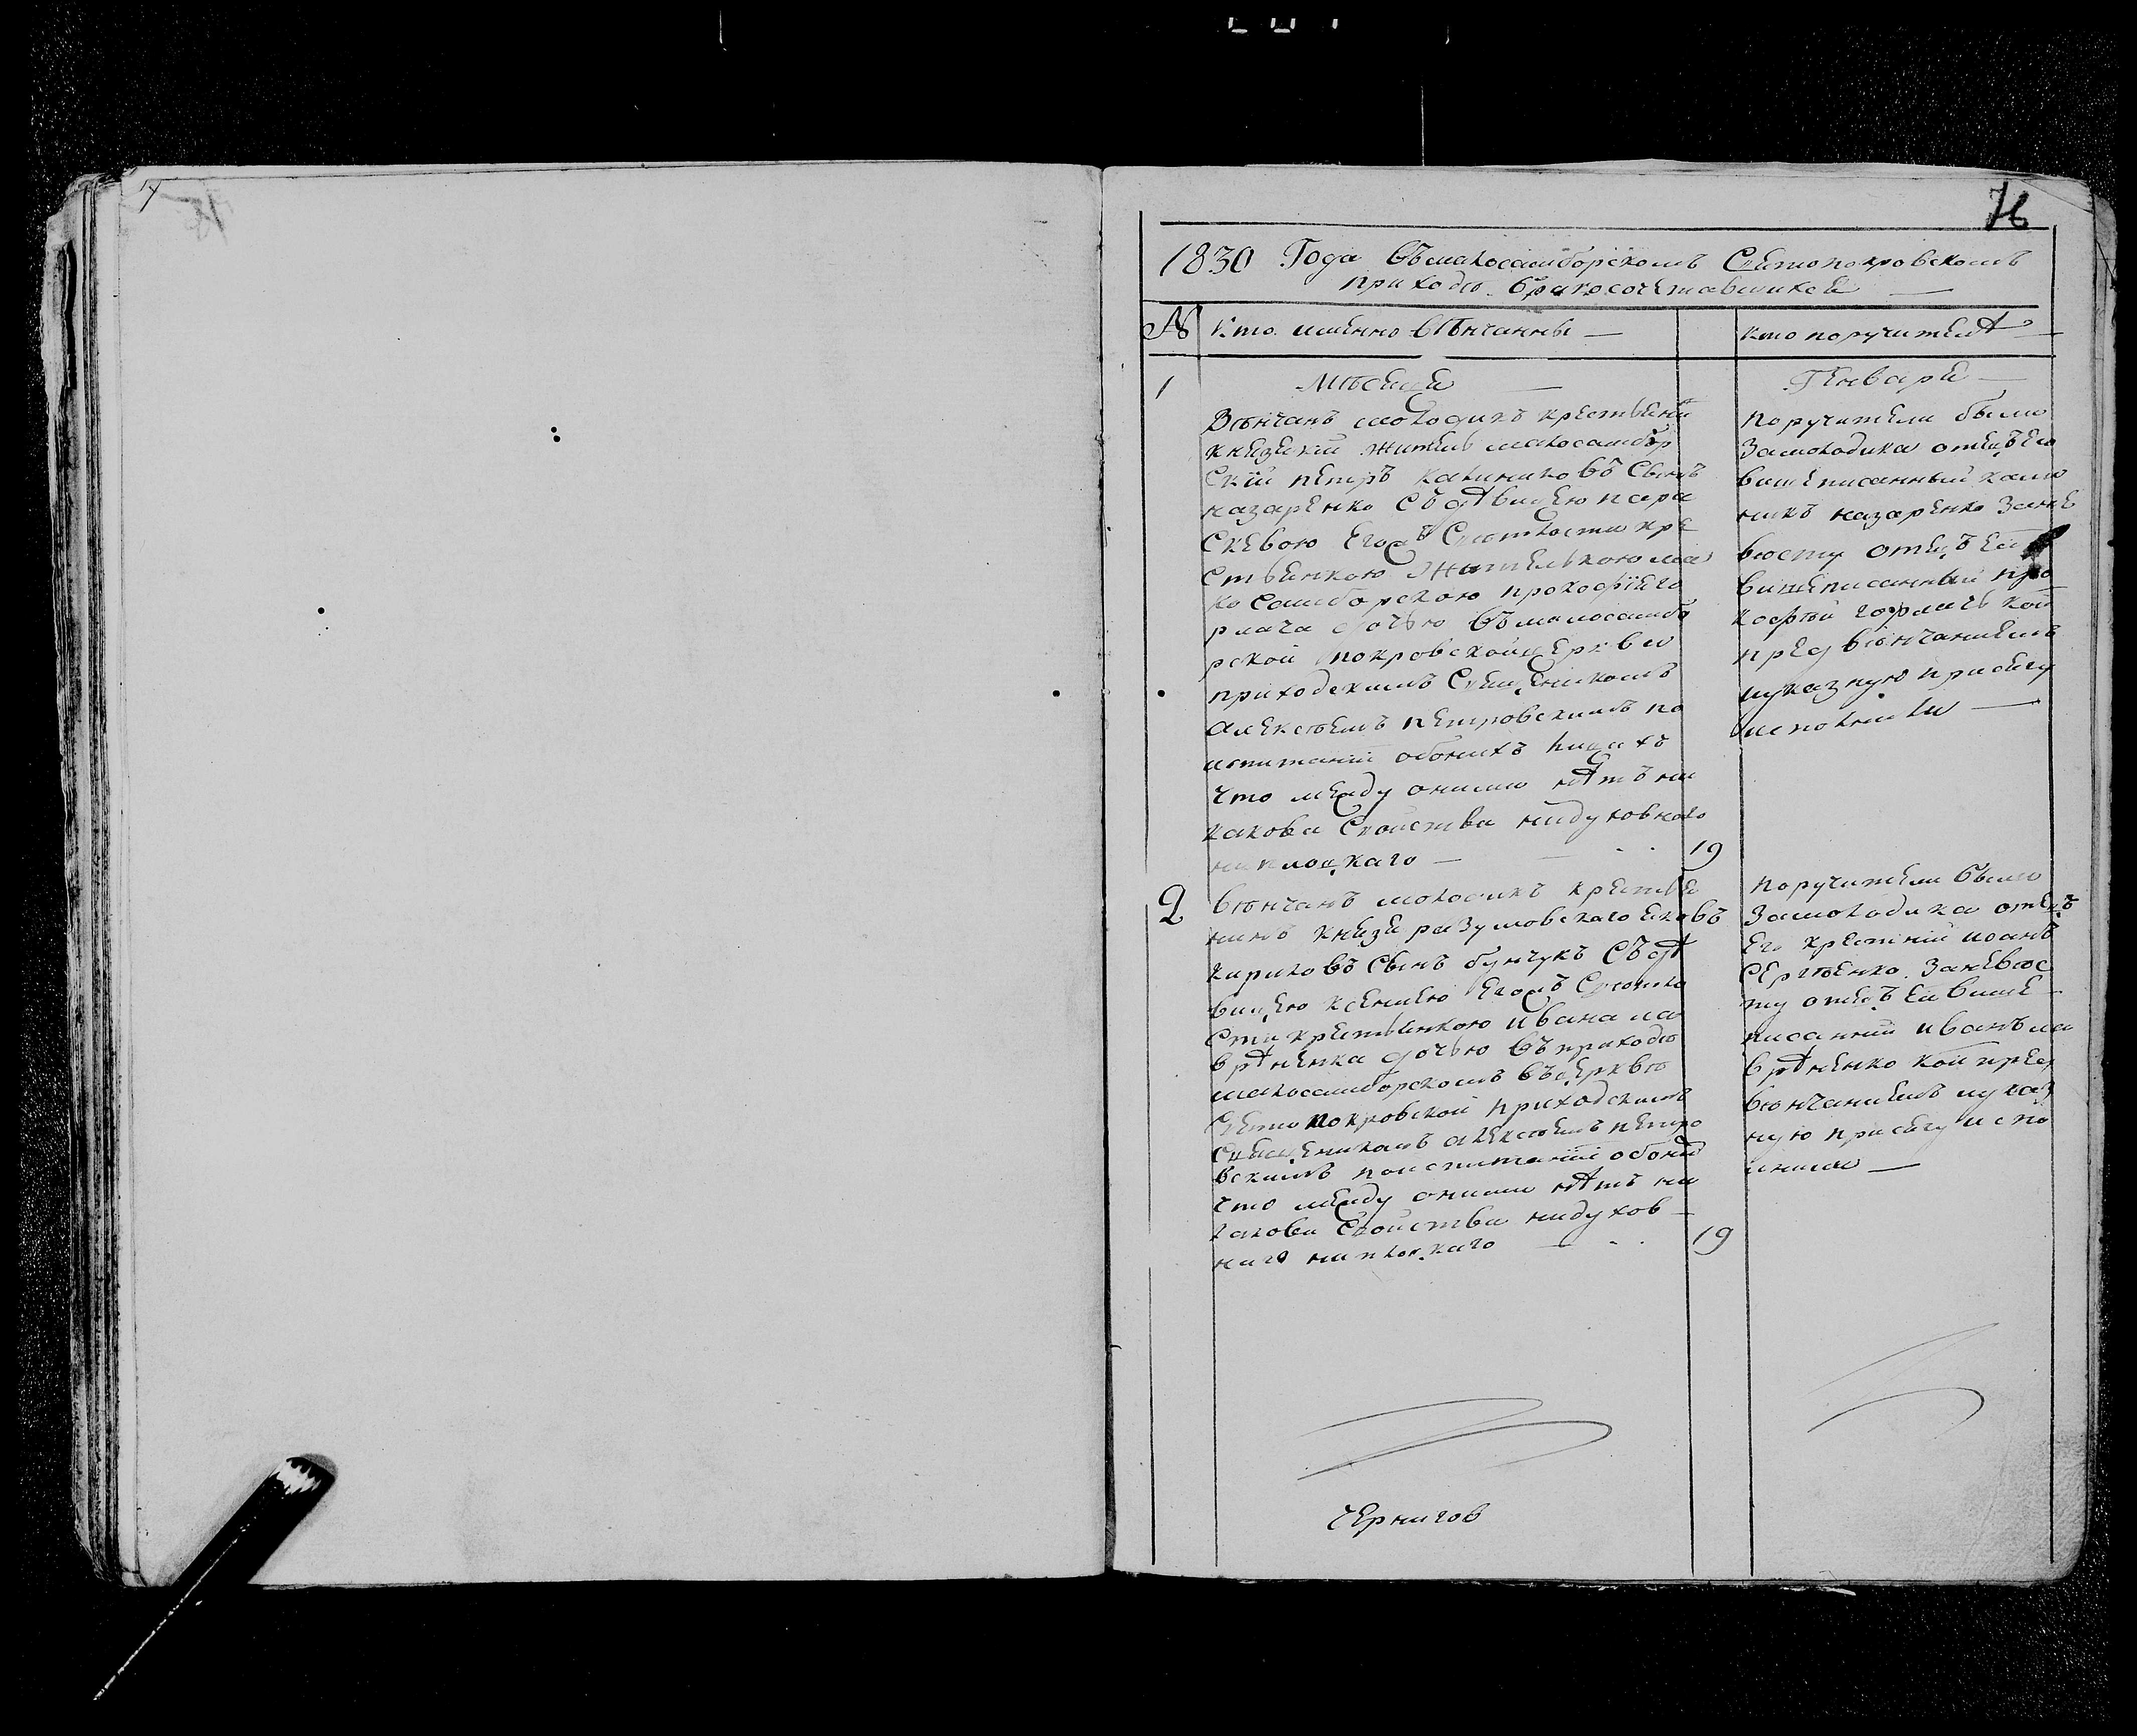 76
1830 Года въ малосамборскомъ Святопокровскомъ
приходѣ бракосочетавшихся
№ Кто именно вѣнчанны — кто поручители
1 Мѣсяца — Генваря —
Вѣнчанъ молодикъ крестянин
князский житель малосамбор
скій петръ калиниковъ сынъ
назаренко съ дѣвицею пара
скевою его ясъ Свѣтлости кре
стьянкою жителькою мa
лосамборскою прокофія го
рлача дочью въ малосамбо
рской покровской церкви
приходскимъ Священикомъ
алексѣемъ петровскимъ по
испитаніи обоихъ лицахъ
что между оними нѣтъ ни
какова Своиства ни духовнаго
ни плоцкаго — 19
Поручители были
За молодика отецъ его
вишеписанный кали
никъ назаренко За не
вѣсту отецъ ея
вишеписанный про
кофий горлачъ кой
пред вѣнчаниемъ
указную присягу
исполнили —
2 вѣнчанъ молодикъ крестья
нинъ князя разумовскаго яковъ
кириловъ сынъ бунчукъ съ дѣ
вицею ксениею его Свѣтло
сти крестьянкою ивана ла
врѣненка дочью въ приходѣ
малосамборскомъ въ церквѣ
Свято покровской приходскимъ
Священикомъ алексѣемъ петро
вскимъ по испитаніи обоих
что между оними нѣтъ ни
какова Своиства ни духов
наго ни плоцкаго — 19
Поручители были
За молодика отецъ
его крестний иоанъ
Сергѣенко. За невѣс
ту отецъ ея више
писанний иванъ ла
врѣненко кой пред
вѣнчаниемъ указ
ную присягу испо
лнили —
чернигов